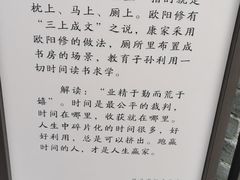 枕上、马上、厕上。欧阳修有
“三上成文”之说，康家采用
欧阳修的做法，厕所里布置成
书房的场景，教育子孙利用一
切时间读书求学。
解读：“业精于勤而荒于
嬉”。时间是最公平的裁判，
时间在哪里，收获就在哪里。
人生中碎片化的时间很多，好
好利用，总是可以挤出。地赢
时间的人，才是人生赢家。